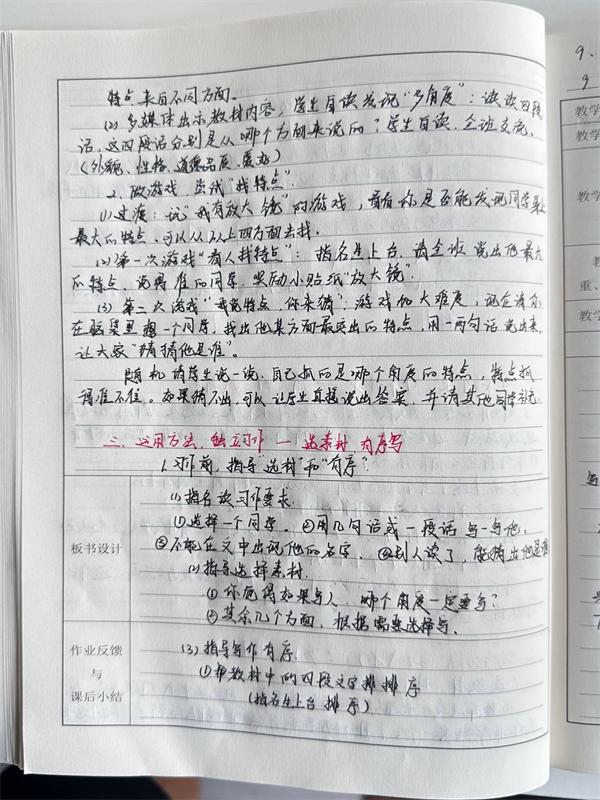 特点来自不同方面。
(2) 多媒体出示教材内容，学生自读发现“多角度”：读读四段
话，这四段话分别是从哪个方面来说的？学生自读，全班交流。
(外貌、性格、道德品质、爱好)
2、做游戏，尝试“找特点”。
(1) 过渡：玩“我有放大镜”的游戏，看看你是否能发现同学身上
最大的特点，可以从以上四方面去找。
(2) 第一次游戏“看人找特点”：指名生上台，请全班说出他最大
的特点，说得准的同学，奖励小贴纸“放大镜”。
(3) 第二次游戏“我说特点，你来猜”：游戏加大难度，现在请你
在脑袋里想一个同学，找出他某方面最突出的特点，用一两句话说出来，
让大家“猜猜他是谁”。
随机请学生说一说，自己抓的是哪个角度的特点，特点抓
得准不准。如果猜不出，可以让学生直接说出答案，并请其他同学补充。
三、运用方法，独立习作 — 选素材 有序写
1、习作前，指导“选材”和“有序”。
板书设计
(1) 指名读习作要求.
①选择一个同学。②用几句话或一段话写一写他。
③不能在文中出现他的名字。④别人读了，能猜出他是谁
(2) 指导选择素材.
①你觉得如果写人，哪个角度一定要写？
②其余几个方面，根据需要选择写。
作业反馈
与
课后小结
(3) 指导写作有序.
①帮教材中的四段文字排排序
(指名生上台排序)
9.
9
教学
教学
教学
教
重、
教学